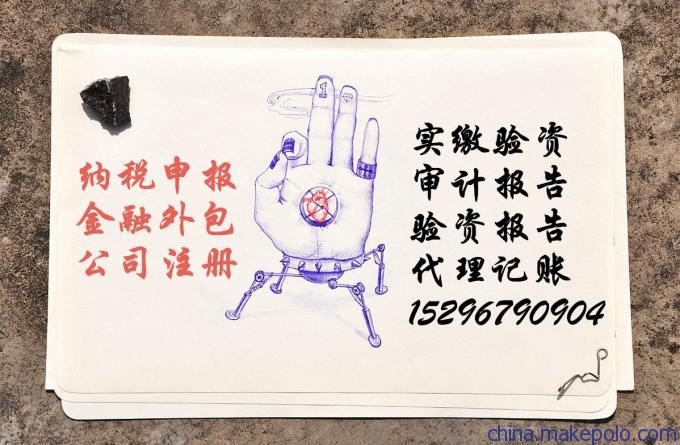 纳税申报
金融外包
公司注册
1
实缴验资
审计报告
验资报告
代理记账
15296790904
china.makepolo.com